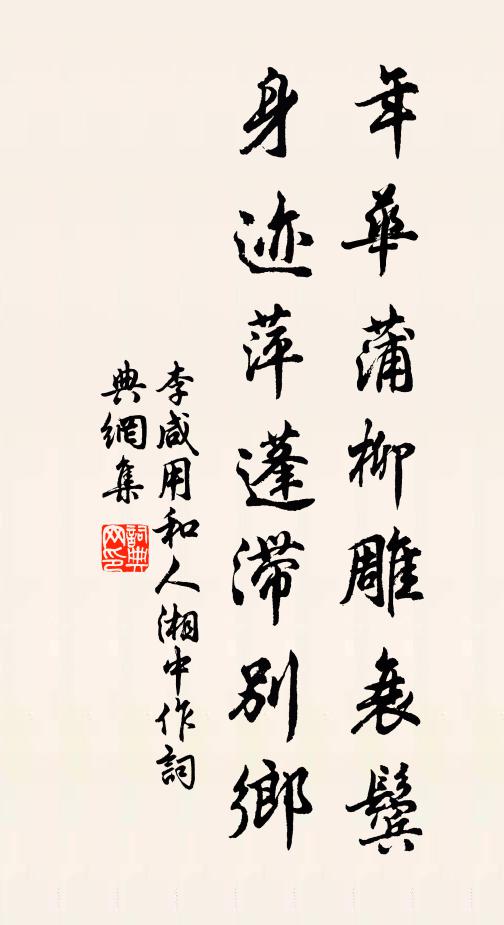 年華蒲柳雕衰鬢
身迹萍蓬滯別鄉
李咸用和人湘中作詞
典網集
詞典網印